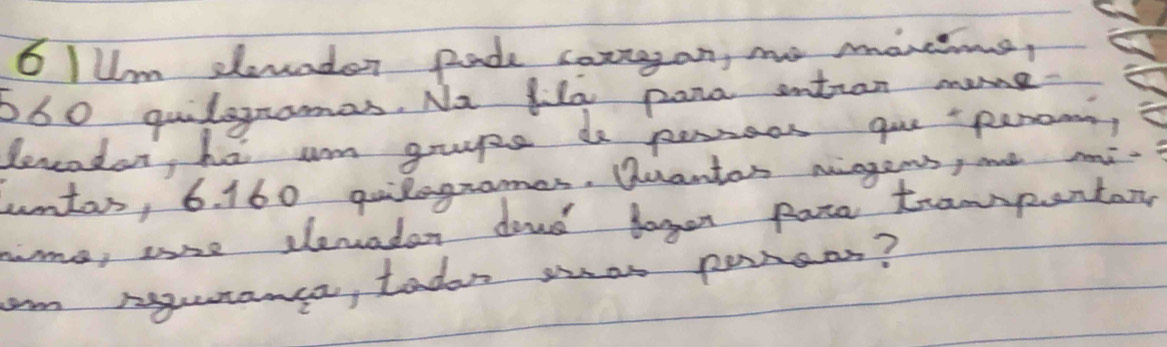 6) Um elevador pode carregar, no máximo,
560 quilogramas. Na fila para entrar nesse
elevador, há um grupo de pessoas que "pesam",
juntas, 6.160 quilogramas. Quantas viagens, no mí-
nimo, esse elevador deverá fazer para transportar,
em segurança, todas essas pessoas?